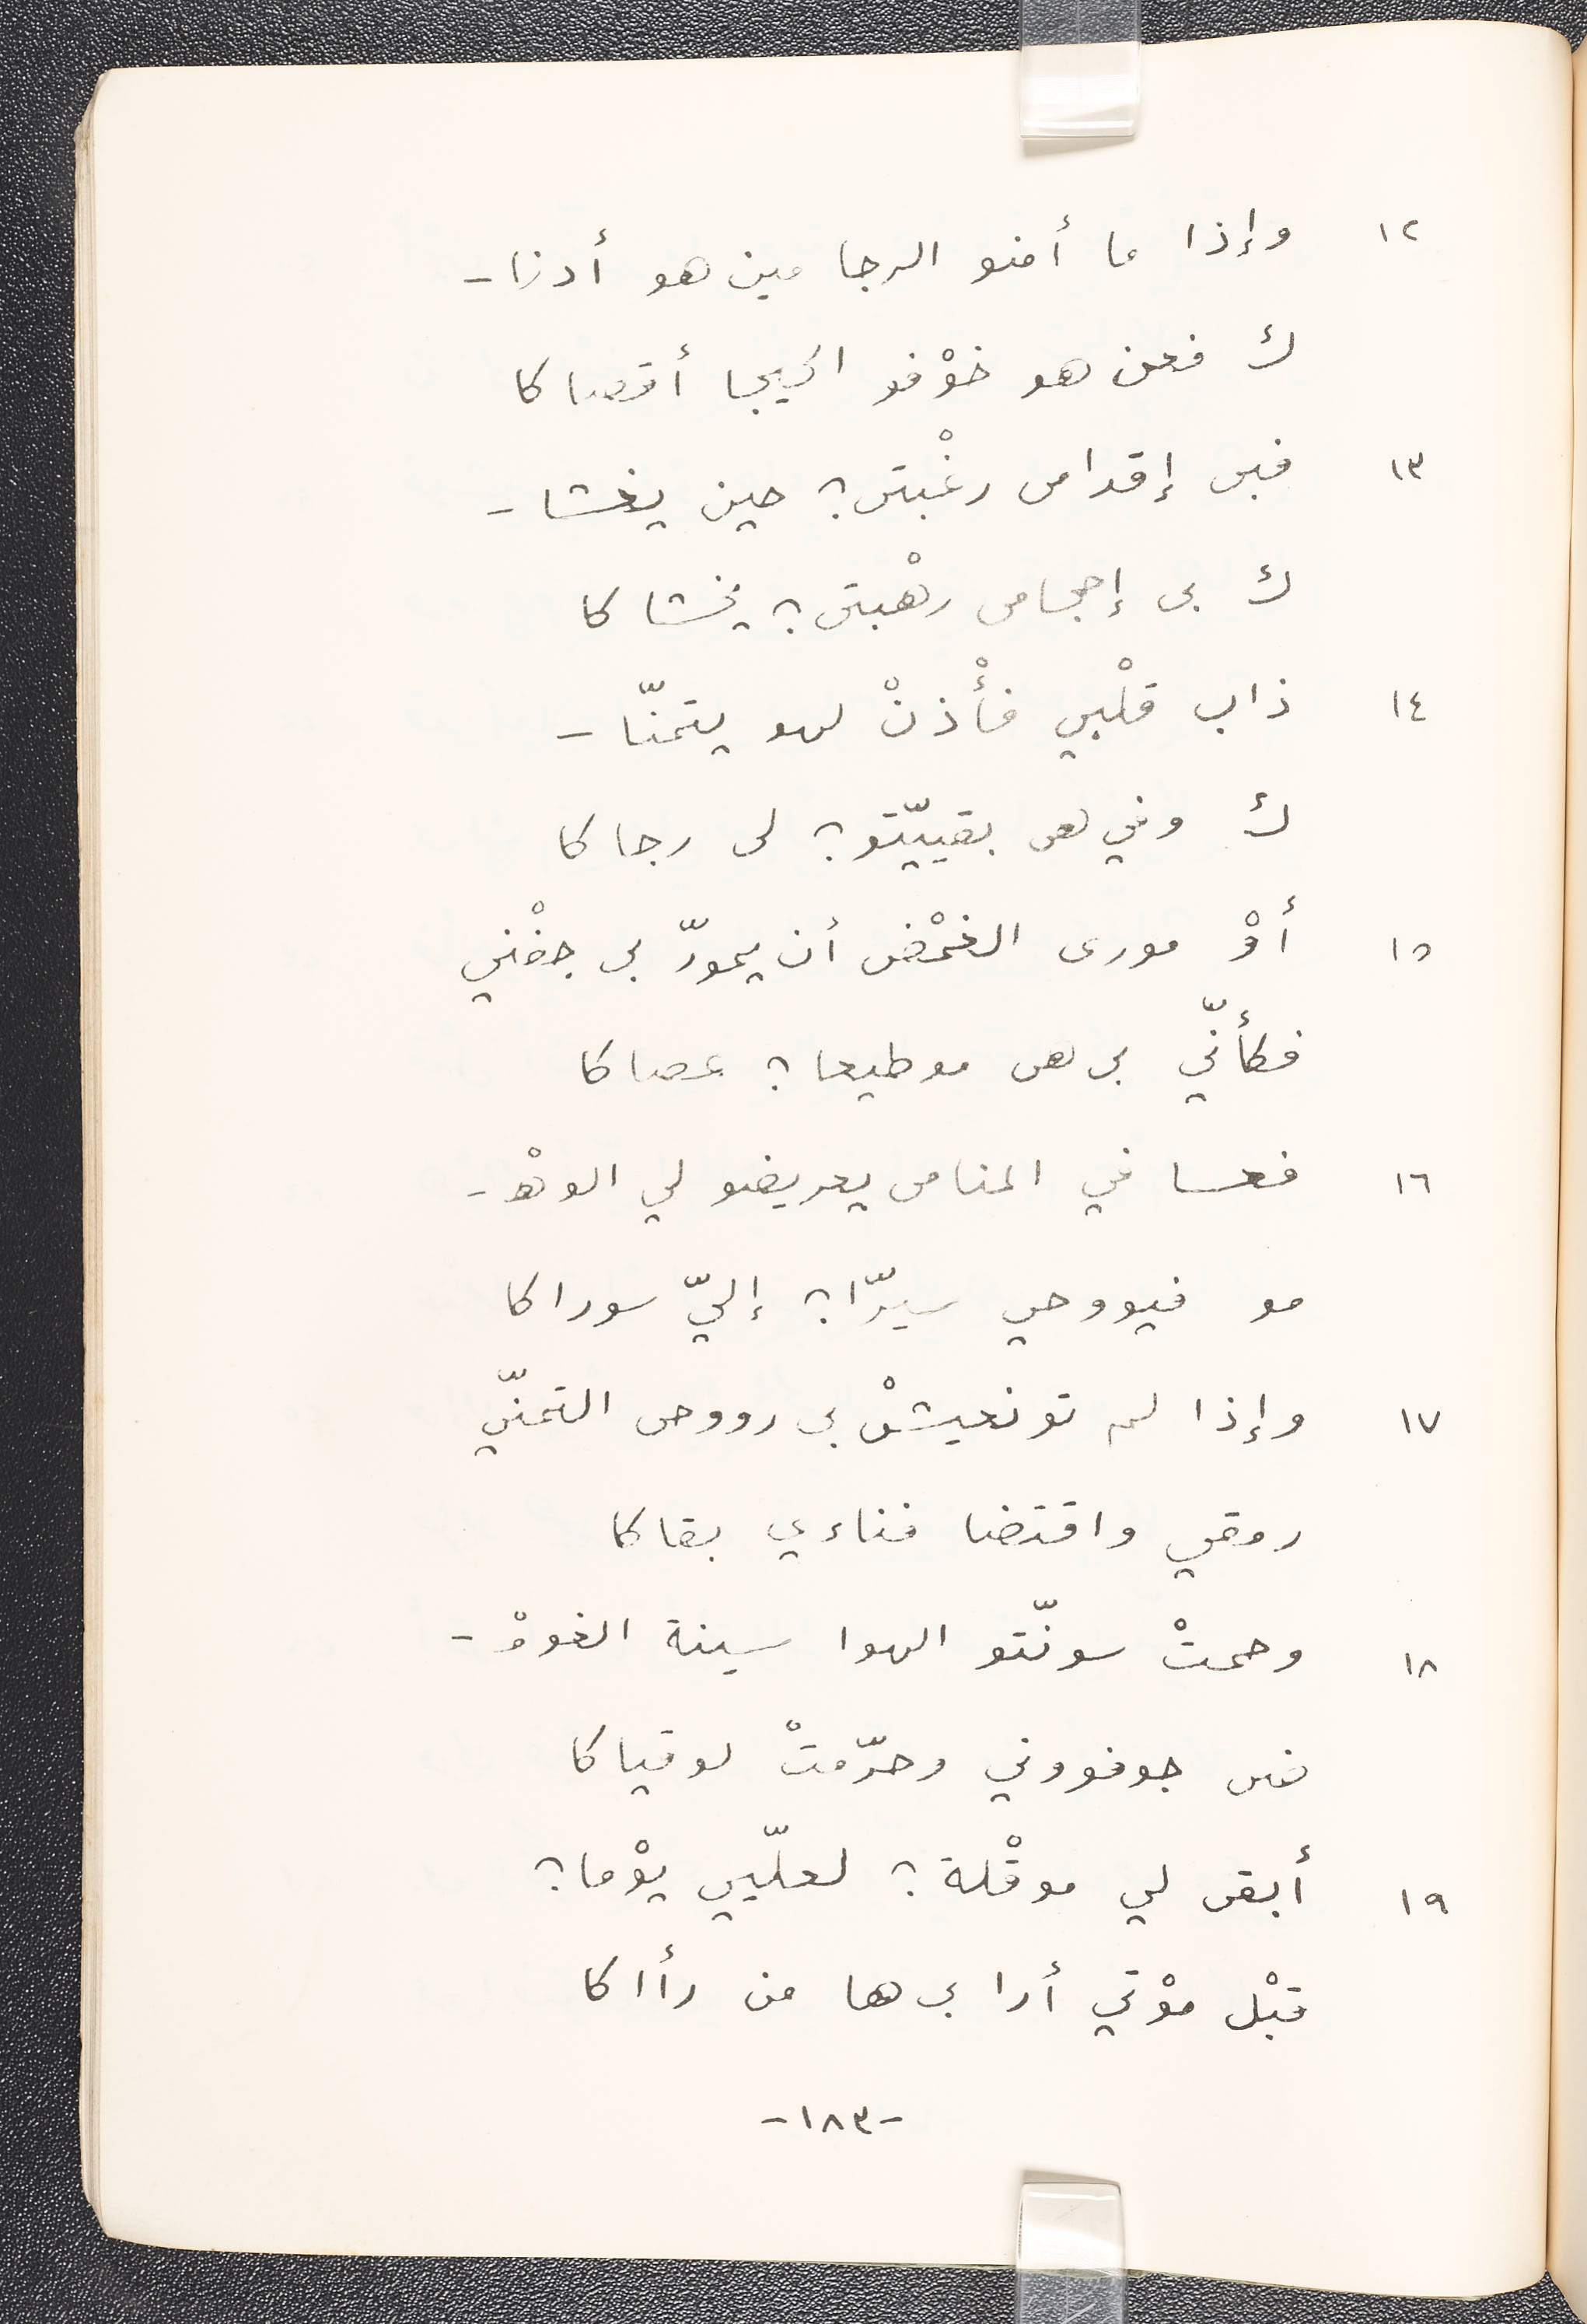 ١٢ وإذا ما أمنو الرجا مين هو أدنا-
ك فعن هو خوْفو الحيجا أقصاكا
١٣ فبى إقدامى رغْبتى؟ حين يغشا-
ك بى إحجامى رهْبتى؟ يخشاكا
١٤ ذاب قلْبي فأْذنْ لهو يتمنّا-
ك وفي هى بقييّتو؟ لى رجاكا
١٥ أوْ مورى الغمْض أن يمورّ بى جفْني
فكأنّي بى هى موطيعا؟ عصاكا
١٦ فعسا في المنامى يعريضو لي الوهْ-
مو فيووحي سيرّا؟ إليّ سوراكا
١٧ وإذا لم تونعيشْ بى رووحى التمنّي
رمقي واقتضا فناءي بقاكا
١٨ وحمتْ سونّتو الهوا سينة الغومْ-
ضى جوفووني وحرّمتْ لوقياكا
١٩ أبقى لي موقْلة؟ لعلّيي يوْما؟
قبْل موْتي أرا بى ها من رأاكا
-١٨٣-